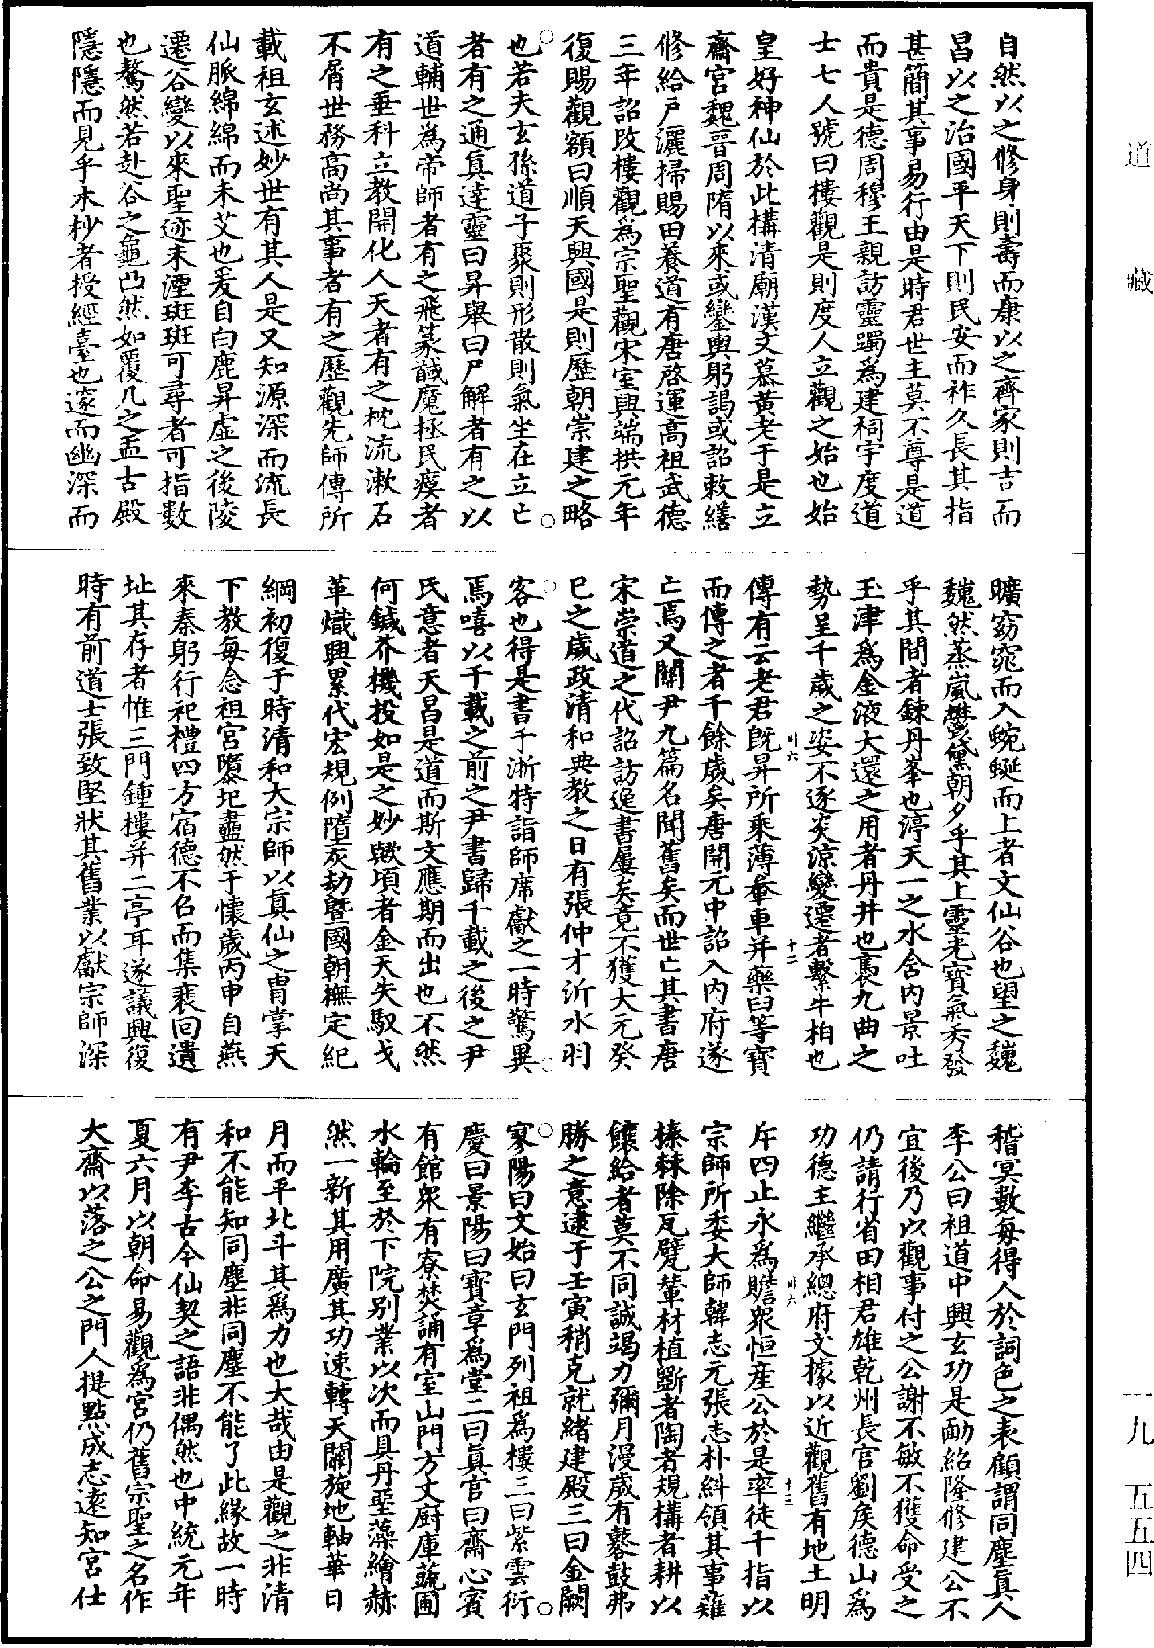 自然以之修身則壽而康以之齊家則吉而
昌以之治國平天下則民安而祚久長其指
甚簡其事易行由是時君世主莫不尊是道
而貴是德周穆王親訪靈躅為建祠宇度道
士七人號曰樓觀是則度人立觀之始也始
皇好神仙於此構清廟漢文慕黃老于是立
齋宮魏晉周隋以來或鑾輿躬謁或詔敕繕
修給戶灑掃賜田養道有唐啓運高祖武德
三年詔改樓觀爲宗聖觀宋室興端拱元年
復賜觀額曰順天興國是則歷朝崇建之略
也若夫玄孫道子聚則形散則氣坐在立亡
者有之通真達靈曰昇舉曰尸解者有之以
道輔世為帝師者有之飛篆馘魔拯民瘼者
有之垂科立教開化人天者有之枕流漱石
不屑世務高尚其事者有之歷觀先師傳所
載祖玄述妙世有其人是又知源深而流長
仙脈綿綿而未艾也爰自白鹿昇虛之後陵
遷谷變以來聖迹未湮斑斑可尋者可指數
也驁然若赴谷之龜凸然如覆几之盂古殿
隱隱而見乎木杪者授經臺也邃而幽深而
曠窈窕而入蜿蜒而上者文仙谷也望之巍
巍然蒸嵐鬱黛朝夕乎其上靈光寶氣秀發
乎其間者鍊丹峯也渟天一之水含內景吐
玉津為金液大還之用者丹井也裊九曲之
勢呈千歲之姿不逐炎涼變遷者繫牛柏也
傳有云老君既昇所乘薄軬車并藥臼等寶
而傳之者千餘歲矣唐開元中詔入內府遂
亡焉又關尹九篇名聞舊矣而世亡其書唐
宋崇道之代詔訪逸書屢矣竟不獲大元癸
巳之歲政清和典教之日有張仲才沂水羽
客也得是書于浙特詣師席獻之一時驚異
焉嘻以千載之前之尹書歸千載之後之尹
氏意者天昌是道而斯文應期而出也不然
何鍼芥機投如是之妙歟頃者金天失馭戈
革熾興累代宏規例墮灰劫暨國朝撫定紀
綱初復于時清和大宗師以真仙之胄掌天
下教每念祖宮隳圮盡然于懷歲丙申自燕
來秦躬行祀禮四方宿德不召而集裵回遺
址其存者惟三門鍾樓并二亭耳遂議興復
時有前道士張致堅狀其舊業以獻宗師深
稽冥數每得人於詞色之表顧謂同塵真人
李公曰祖道中興玄功是勔紹隆修建公不
宜後乃以觀事付之公謝不敏不獲命受之
仍請行省田相君雄乾州長官劉侯德山為
功德主繼承總府文據以近觀舊有地土明
斥四止永為贍眾恒産公於是率徒千指以
宗師所委大師韓志元張志朴糾領其事薙
榛棘除瓦甓輦材植斷者陶者規構者耕以
饟給者莫不同誠竭力彌月漫歲有鼛鼓弗
勝之意逮于壬寅稍克就緒建殿三曰金闕
寥陽曰文始曰玄門列祖為樓三曰紫雲衍
慶曰景陽曰寶章爲堂二曰真官曰齋心賓
有館衆有寮焚誦有室山門方丈厨庫蔬圃
水輪至於下院別業以次而具丹堊藻繪赫
然一新其用廣其功速轉天關旋地軸華日
月而平北斗其爲力也大哉由是觀之非清
和不能知同塵非同塵不能了此緣故一時
有尹李古今仙契之語非偶然也中統元年
夏六月以朝命易觀為宮仍舊宗聖之名作
大齋以落之公之門人提點成志遠知宮仕
卅六 十二
卅六 十三
道藏
一九 五五四